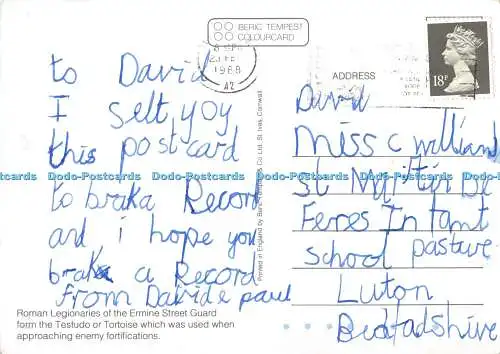 BERIC TEMPEST
COLOURCARD
1988
AZ
18P
ADDRESS
to David
I selt yoy
this postcard
to braka Record
and i hope you
braka a Record
From David e paul
Roman Legionaries of the Ermine Street Guard
form the Testudo or Tortoise which was used when
approaching enemy fortifications.
Printed in England by Beric Tempest & Co. Ltd. St. Ives, Cornwall
David
Miss C William
st Majtir De
Feres Infant
school pasture
Luton
Bedfadshire
Dodo-Postcards Dodo-Postcards Dodo-Postcards Dodo-Postcards Dodo-Postcards